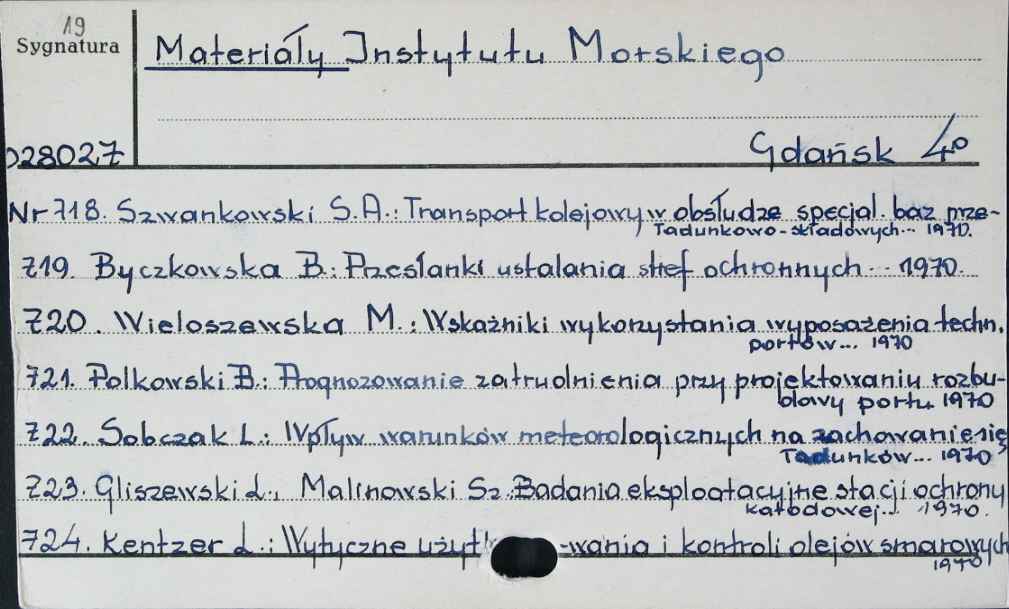 19
Sygnatura
Materiały Instytutu Morskiego
028027
Gdańsk 4°
Nr 718. Szwankowski S.A.: Transport kolejowy w obsłudze specjal. baz prze-
ładunkowo-składowych... 1970.
719. Byczkowska B.: Przesłanki ustalania stref ochronnych... 1970.
720. Wieloszewska M.: Wskaźniki wykorzystania wyposażenia techn.
portów... 1970
721. Polkowski B.: Prognozowanie zatrudnienia przy projektowaniu rozbu-
dowy portu 1970
722. Sobczak L.: Wpływ warunków meteorologicznych na zachowanie się
ładunków... 1970
723. Gliszewski L., Malinowski Sz. Badania eksploatacyjne stacji ochrony
katodowej... 1970.
724. Kentzer L.: Wytyczne użyt -wania i kontroli olejów smarowych
1970